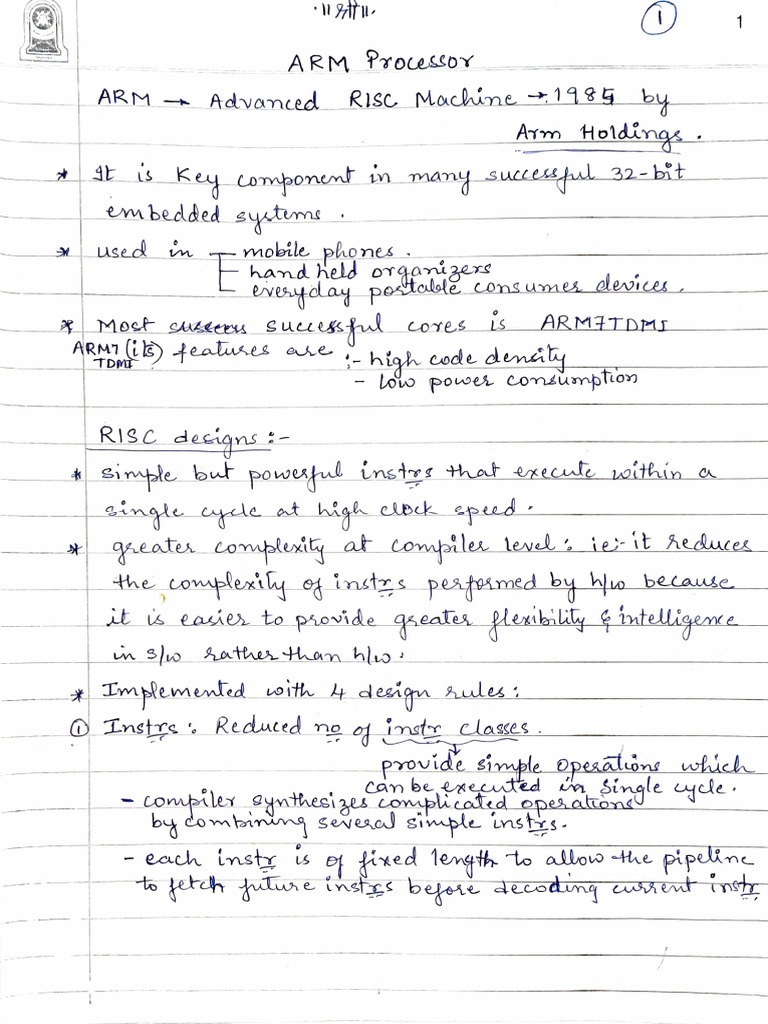 ॥ श्री ॥
1
1
ARM Processor
ARM → Advanced RISC Machine → 1985 by
Arm Holdings.
* It is Key component in many successful 32-bit
embedded systems.
* used in - mobile phones.
hand held organizers
everyday portable consumer devices.
* Most successful cores is ARM7TDMI
ARM7 (it's) features are :- high code density
TDMI
- low power consumption
RISC designs :-
* simple but powerful instrs that execute within a
single cycle at high clock speed.
* greater complexity at compiler level : ie:- it reduces
the complexity of instrs performed by h/w because
it is easier to provide greater flexibility & intelligence
in s/w rather than h/w.
* Implemented with 4 design rules:
① Instrs : Reduced no of instr classes.
provide simple operations which
can be executed in single cycle.
- compiler synthesizes complicated operations
by combining several simple instrs.
- each instr is of fixed length to allow the pipeline
to fetch future instrs before decoding current instr